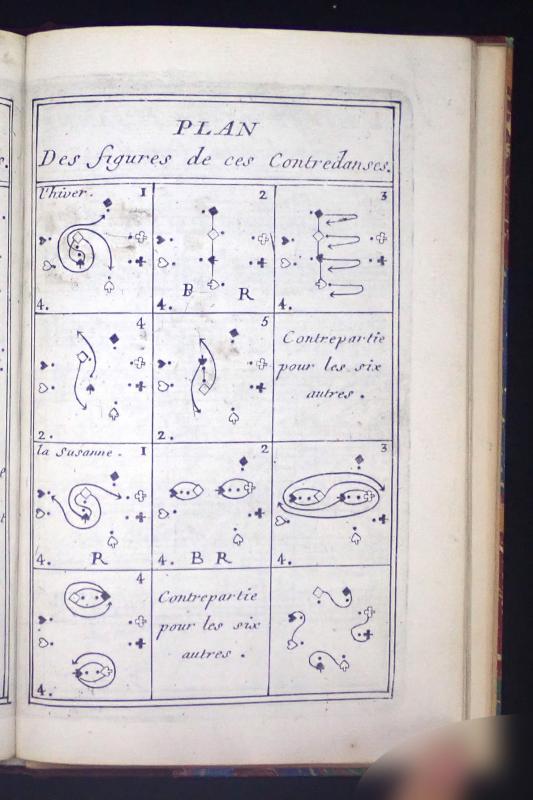 PLAN
Des figures de ces Contredanses.
l'hiver. 1
4.
2
4. B R
3
4.
4
2.
5
2.
Contrepartie
pour les six
autres.
la Susanne. 1
4. R
2
4. B R
3
4.
4
4.
Contrepartie
pour les six
autres.